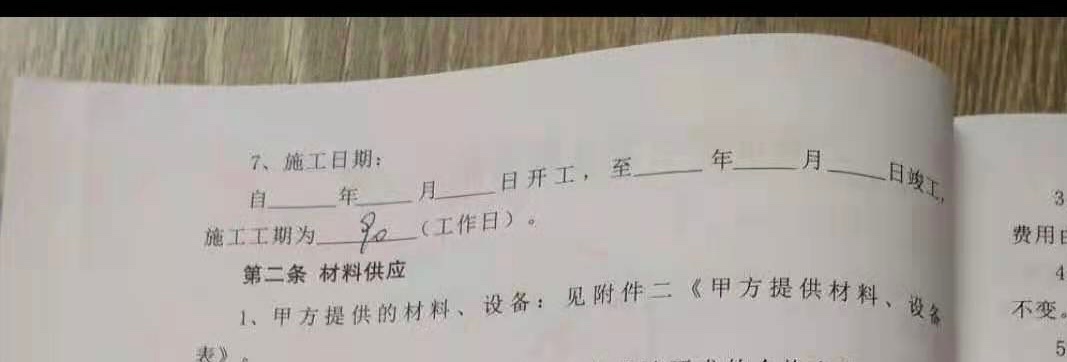 7、施工日期：
自______年______月______日开工，至______年______月______日竣工，
施工工期为 90 （工作日）。
第二条 材料供应
1、甲方提供的材料、设备：见附件二《甲方提供材料、设备
表》。
3
费用
4
不变。
5